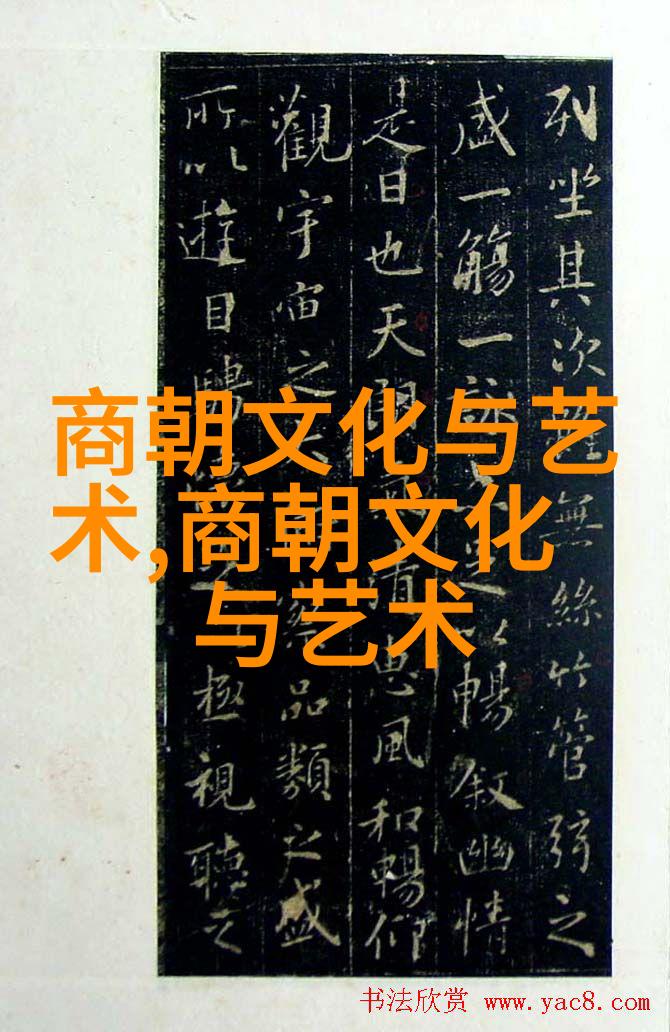 列坐其次雖無絲竹管弦之
盛一觴一詠足以暢叙幽情
是日也天朗清惠風和暢仰
觀宇宙之察品類之盛
所以遊目騁極視聽之
商朝文化与艺
术,商朝文化
与艺术
书法欣赏 www.yac8.com